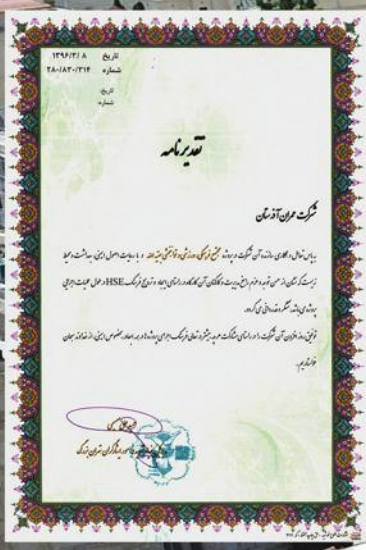 تاریخ ۱۳۹۶/۳/۸
شماره ۲۸۰/۸۳۰/۳۱۴
تاریخ:
شماره:
تقدیرنامه
شرکت عمران آذرستان
بپاس تعامل و همکاری سازنده آن شرکت در پروژه مجتمع فرهنگی، ورزشی و فرا و با رعایت اصول ایمنی، بهداشت و محیط
زیست کارکنان، از حسن توجه و عزم راسخ مدیریت و کارکنان آن کارگاه در راستای ایجاد و ترویج فرهنگ HSE در طول عملیات اجرایی
پروژه می‌باشد، تشکر و قدردانی می‌گردد.
توفیق روز افزون آن شرکت را در راستای مشارکت هر چه بیشتر و تعالی فرهنگ اجرای پروژه‌ها در همه ابعاد، بخصوص ایمنی، از خداوند سبحان
خواستاریم.